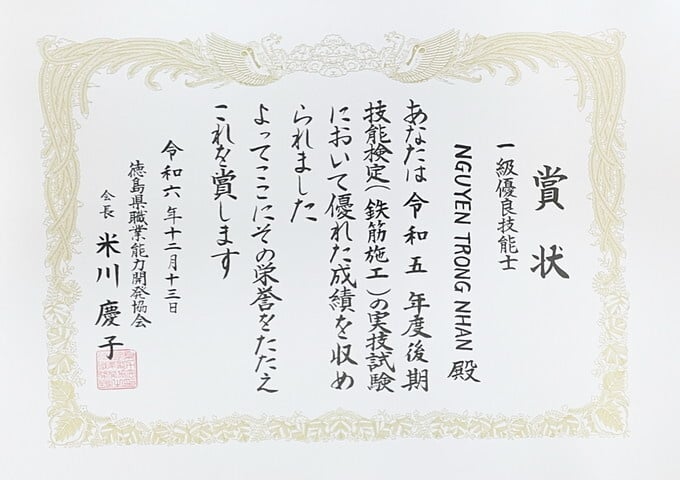 賞状
一級優良技能士
NGUYEN TRONG NHAN 殿
あなたは令和五年度後期
技能検定(鉄筋施工)の実技試験
において優れた成績を収め
られました
よってここにその栄誉をたたえ
これを賞します
令和六年十二月十三日
徳島県職業能力開発協会
会長 米川慶子